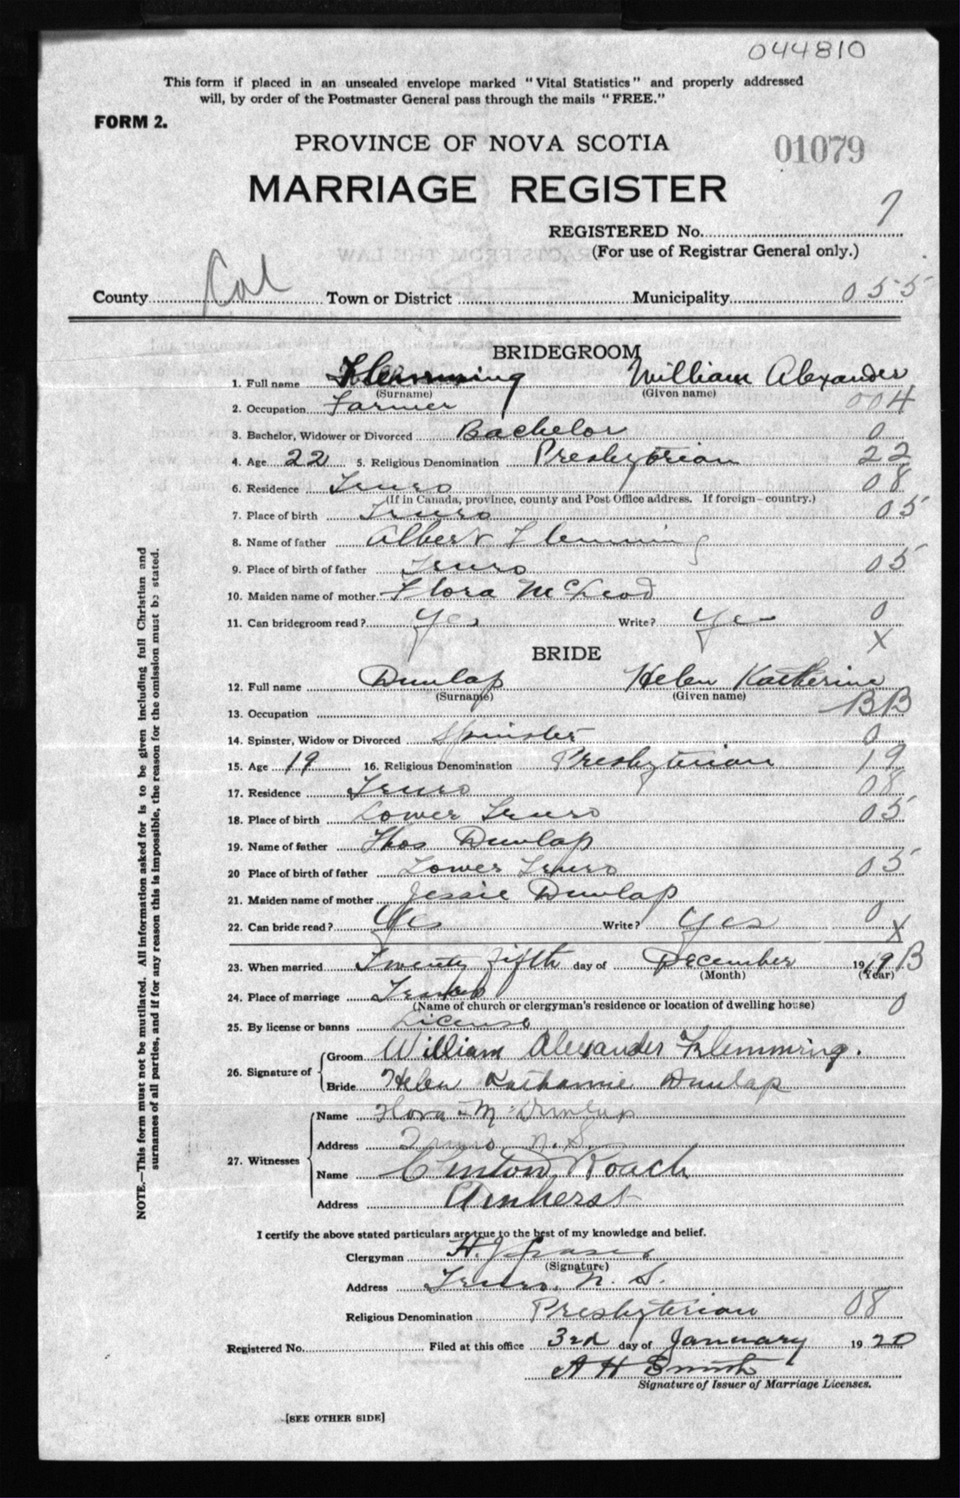 044810
This form if placed in an unsealed envelope marked "Vital Statistics" and properly addressed
will, by order of the Postmaster General pass through the mails "FREE."
FORM 2.
PROVINCE OF NOVA SCOTIA
01079
MARRIAGE REGISTER
REGISTERED No. 7
(For use of Registrar General only.)
County Col Town or District Municipality 055
BRIDEGROOM
1. Full name Flemming William Alexander
(Surname) (Given name)
2. Occupation Farmer 004
3. Bachelor, Widower or Divorced Bachelor 0
4. Age 22 5. Religious Denomination Presbyterian 22
6. Residence Truro 08
(If in Canada, province, county and Post Office address. If foreign—country.)
7. Place of birth Truro 05
8. Name of father Albert Flemming
9. Place of birth of father Truro 05
10. Maiden name of mother Flora McLeod
11. Can bridegroom read? Yes Write? Yes 0
X
BRIDE
12. Full name Dunlap Helen Katherine
(Surname) (Given name)
13. Occupation BB
14. Spinster, Widow or Divorced Spinster 0
15. Age 19 16. Religious Denomination Presbyterian 19
17. Residence Truro 08
18. Place of birth Lower Truro 05
19. Name of father Thos Dunlap
20 Place of birth of father Lower Truro 05
21. Maiden name of mother Jessie Dunlap
22. Can bride read? Yes Write? Yes 0
X
23. When married Twenty fifth day of December 1919 B
(Month) (Year)
24. Place of marriage Truro 0
(Name of church or clergyman's residence or location of dwelling house)
25. By license or banns License
26. Signature of Groom William Alexander Flemming.
Bride Helen Katharine Dunlap
27. Witnesses
Name Flora M Dunlap
Address Truro N.S.
Name Clinton Roach
Address Amherst
I certify the above stated particulars are true to the best of my knowledge and belief.
Clergyman H. J. Fraser
(Signature)
Address Truro, N. S.
Religious Denomination Presbyterian 08
Registered No. Filed at this office 3rd day of January 1920
A H Smith
Signature of Issuer of Marriage Licenses.
[SEE OTHER SIDE]
NOTE.—This form must not be mutilated. All information asked for is to be given including full Christian and
surnames of all parties, and if for any reason this is impossible, the reason for the omission must be stated.